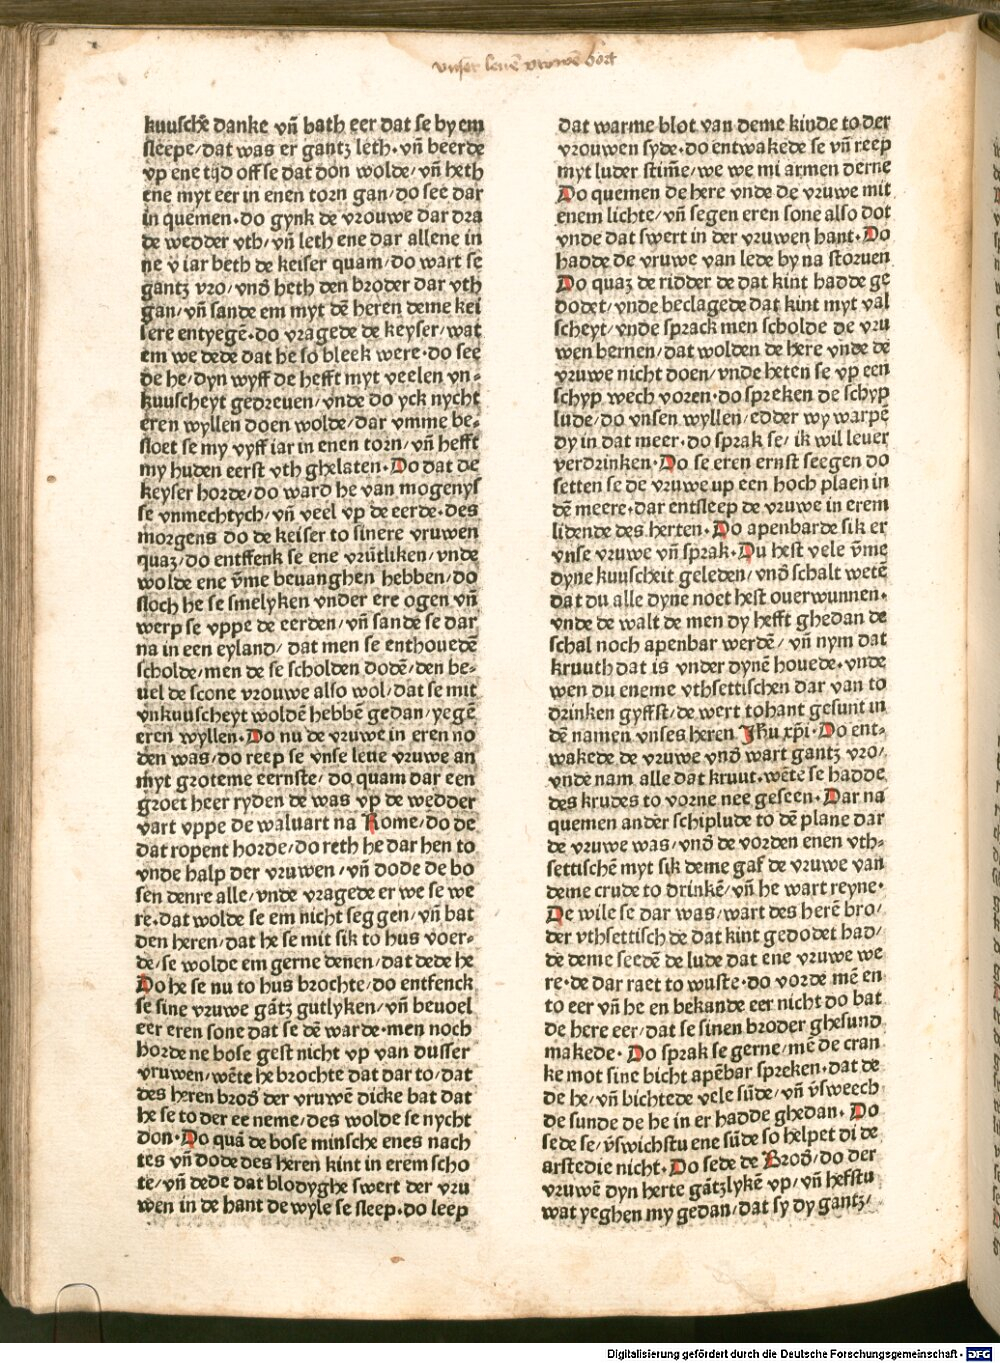 vnser leuē vrowē bort
kuuschē danke vn̄ bath eer dat se by em
sleepe/dat was er gantz leth·vn̄ beerde
vp ene tijd off se dat don wolde/vn̄ heth
ene myt eer in enen torn gan/do see dar
in quemen·do gynk de vrouwe dar dra
de wedder vth/vn̄ leth ene dar allene in
ne v iar beth de keiser quam/do wart se
gantz vro/vnd̄ heth den broder dar vth
gan/vn̄ sande em myt dē heren deme kei
sere entyegē·do vragede de keyser/wat
em we dede dat he so bleek were·do see
de he/dyn wyff de hefft myt veelen vn⸗
kuuscheyt gedreuen/vnde do yck nycht
eren wyllen doen wolde/dar vmme be⸗
sloet se my vyff iar in enen torn/vn̄ hefft
my huden eerst vth ghelaten·Do dat de
keyser horde/do ward he van mogenys
se vnmechtych/vn̄ veel vp de eerde·des
morgens do de keiser to sinere vruwen
quaz/do entffenk se ene vrūtliken/vnde
wolde ene v̄me beuanghen hebben/do
sloch he se smelyken vnder ere ogen vn̄
werp se vppe de eerden/vn̄ sande se dar
na in een eyland/dat men se enthouedē
scholde/men de se scholden dodē/den be⸗
uel de scone vrouwe also wol/dat se mit
vnkuuscheyt woldē hebbē gedan/yegē
eren wyllen·Do nu de vruwe in eren no
den was/do reep se vnse leue vruwe an
myt groteme eernste/do quam dar een
groet heer ryden de was vp de wedder
vart vppe de waluart na Rome/do de
dat ropent horde/do reth he dar hen to
vnde halp der vruwen/vn̄ dode de bo
sen denre alle/vnde vragede er we se we
re·dat wolde se em nicht seggen/vn̄ bat
den heren/dat he se mit sik to hus voer⸗
de/se wolde em gerne denen/dat dede he
Do he se nu to hus brochte/do entfenck
se sine vruwe gātz gutlyken/vn̄ beuoel
eer eren sone dat se dē warde·men noch
horde ne bose gest nicht vp van dusser
vruwen/wēte he brochte dat dar to/dat
des heren brod̄ der vruwē dicke bat dat
he se to der ee neme/des wolde se nycht
don·Do quā de bose minsche enes nach
tes vn̄ dode des heren kint in erem scho
te/vn̄ dede dat blodyghe swert der vru
wen in de hant de wyle se sleep·do leep
dat warme blot van deme kinde to der
vrouwen syde·do entwakede se vn̄ reep
myt luder stim̄e/we we mi armen derne
Do quemen de here vnde de vruwe mit
enem lichte/vn̄ segen eren sone also dot
vnde dat swert in der vruwen hant·Do
hadde de vruwe van lede by na storuen
Do quaz de ridder de dat kint hadde ge
dodet/vnde beclagede dat kint myt val
scheyt/vnde sprack men scholde de vru
wen bernen/dat wolden de here vnde de
vruwe nicht doen/vnde heten se vp een
schyp wech voren·do spreken de schyp
lude/do vnsen wyllen/edder wy warpē
dy in dat meer·do sprak se/ik wil leuer
verdrinken·Do se eren ernst seegen do
setten se de vruwe up een hoch plaen in
dē meere·dar entsleep de vruwe in erem
lidende des herten·Do apenbarde sik er
vnse vruwe vn̄ sprak·Du hest vele v̄me
dyne kuuscheit geleden/vnd̄ schalt wetē
dat du alle dyne noet hest ouerwunnen·
vnde de walt de men dy hefft ghedan de
schal noch apenbar werdē/vn̄ nym dat
kruuth dat is vnder dynē houede·vnde
wen du eneme vthsettischen dar van to
drinken gyffst/de wert tohant gesunt in
dē namen vnses heren Jhu xp̄i·Do ent⸗
wakede de vruwe vnd̄ wart gantz vro/
vnde nam alle dat kruut·wēte se hadde
des krudes to vorne nee geseen·Dar na
quemen ander schiplude to dē plane dar
de vruwe was/vnd̄ de vorden enen vth⸗
settischē myt sik deme gaf de vruwe van
deme crude to drinkē/vn̄ he wart reyne·
De wile se dar was/wart des herē bro/
der vthsettisch de dat kint gedodet had/
de deme seedē de lude dat ene vruwe we
re·de dar raet to wuste·do vorde mē en
to eer vn̄ he en bekande eer nicht do bat
de here eer/dat se sinen broder ghesund
makede·Do sprak se gerne/mē de cran
ke mot sine bicht apēbar spreken·dat de
de he/vn̄ bichtede vele sūde/vn̄ v̄sweech
de sunde de he in er hadde ghedan·Do
sede se/v̄swichstu ene sūde so helpet di de
arstedie nicht·Do sede de Brod̄/do der
vruwē dyn herte gātzlykē vp/vn̄ hefstu
wat yeghen my gedan/dat sy dy gantz/
Digitalisierung gefördert durch die Deutsche Forschungsgemeinschaft - DFG